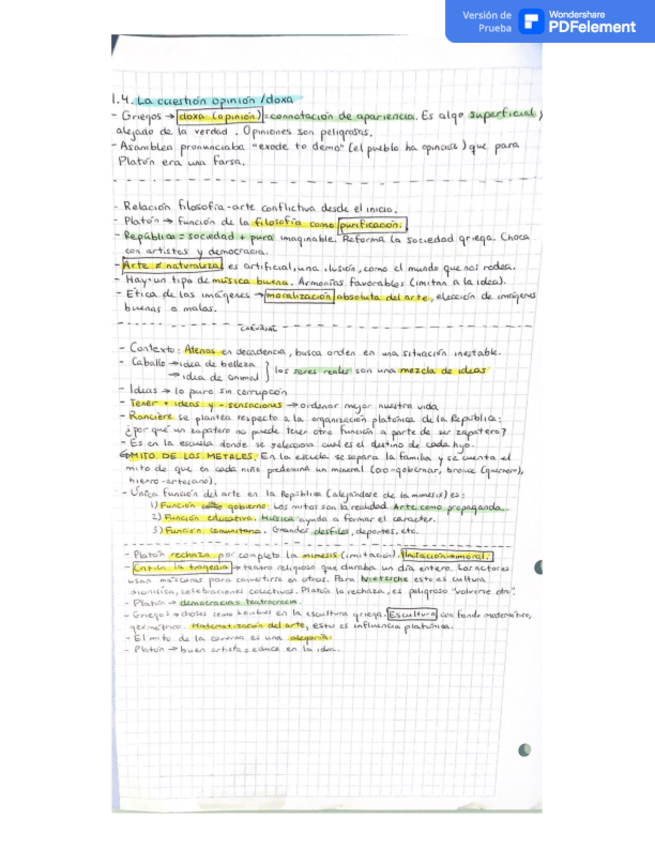 Versión de
Prueba
Wondershare
PDFelement
1.4. La cuestión opinión/doxa
- Griegos → doxa (opinión) = connotación de apariencia. Es algo superficial,
alejado de la verdad. Opiniones son peligrosas.
- Asamblea pronunciaba "exode to demo" (el pueblo ha opinado) que para
Platón era una farsa.
- Relación filosofía-arte conflictiva desde el inicio.
- Platón → función de la filosofía como purificación.
- República = sociedad + pura imaginable. Reforma la sociedad griega. Choca
con artistas y democracia.
- Arte ≠ naturaleza, es artificial, una ilusión, como el mundo que nos rodea.
- Hay un tipo de música buena. Armonías favorables (imitan a la idea).
- Ética de las imágenes → moralización absoluta del arte, elección de imágenes
buenas o malas.
- Contexto: Atenas en decadencia, busca orden en una situación inestable.
- Caballo → idea de belleza
→ idea de animal } los seres reales son una mezcla de ideas
- Ideas → lo puro sin corrupción
- Tener + ideas y - sensaciones → ordenar mejor nuestra vida
- Rancière se plantea respecto a la organización platónica de la República:
¿por qué un zapatero no puede tener otra función a parte de ser zapatero?
- Es en la escuela donde se selecciona cual es el destino de cada hijo.
MITO DE LOS METALES: En la escuela se separa la familia y se cuenta el
mito de que en cada niño predomina un mineral (oro-gobernar, bronce (guerrero),
hierro-artesano).
- Única función del arte en la República (alejándose de la mímesis) es:
1) Función gobierno. Los mitos son la realidad. Arte como propaganda.
2) Función educativa. Música ayuda a formar el carácter.
3) Función comunitaria. Grandes desfiles, deportes, etc.
- Platón rechaza por completo la mímesis (imitación). Imitación → moral.
- Critica la tragedia → teatro religioso que duraba un día entero. Los actores
usan máscaras para convertirse en otros. Para Nietzsche esto es cultura
dionisíaca, celebraciones colectivas. Platón la rechaza, es peligroso "volverse otro".
- Platón → democracia teatrocracia.
- Griegos → dioses como hombres en la escultura griega. Escultura con fondo matemático,
geométrico. Matematización del arte, esto es influencia platónica.
- El mito de la caverna es una alegoría.
- Platón → buen artista = educa en la idea.